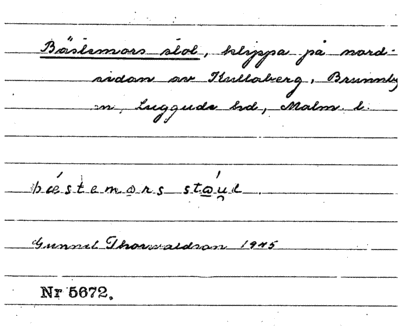 Bästemors stol, klippa på nord-
sidan av Kullaberg, Brunnby
sn, Luggude hd, Malm. l.
bæ´stemɷrs stå´u̯l
Gunnel Thorwaldson 1945
Nr 5672.